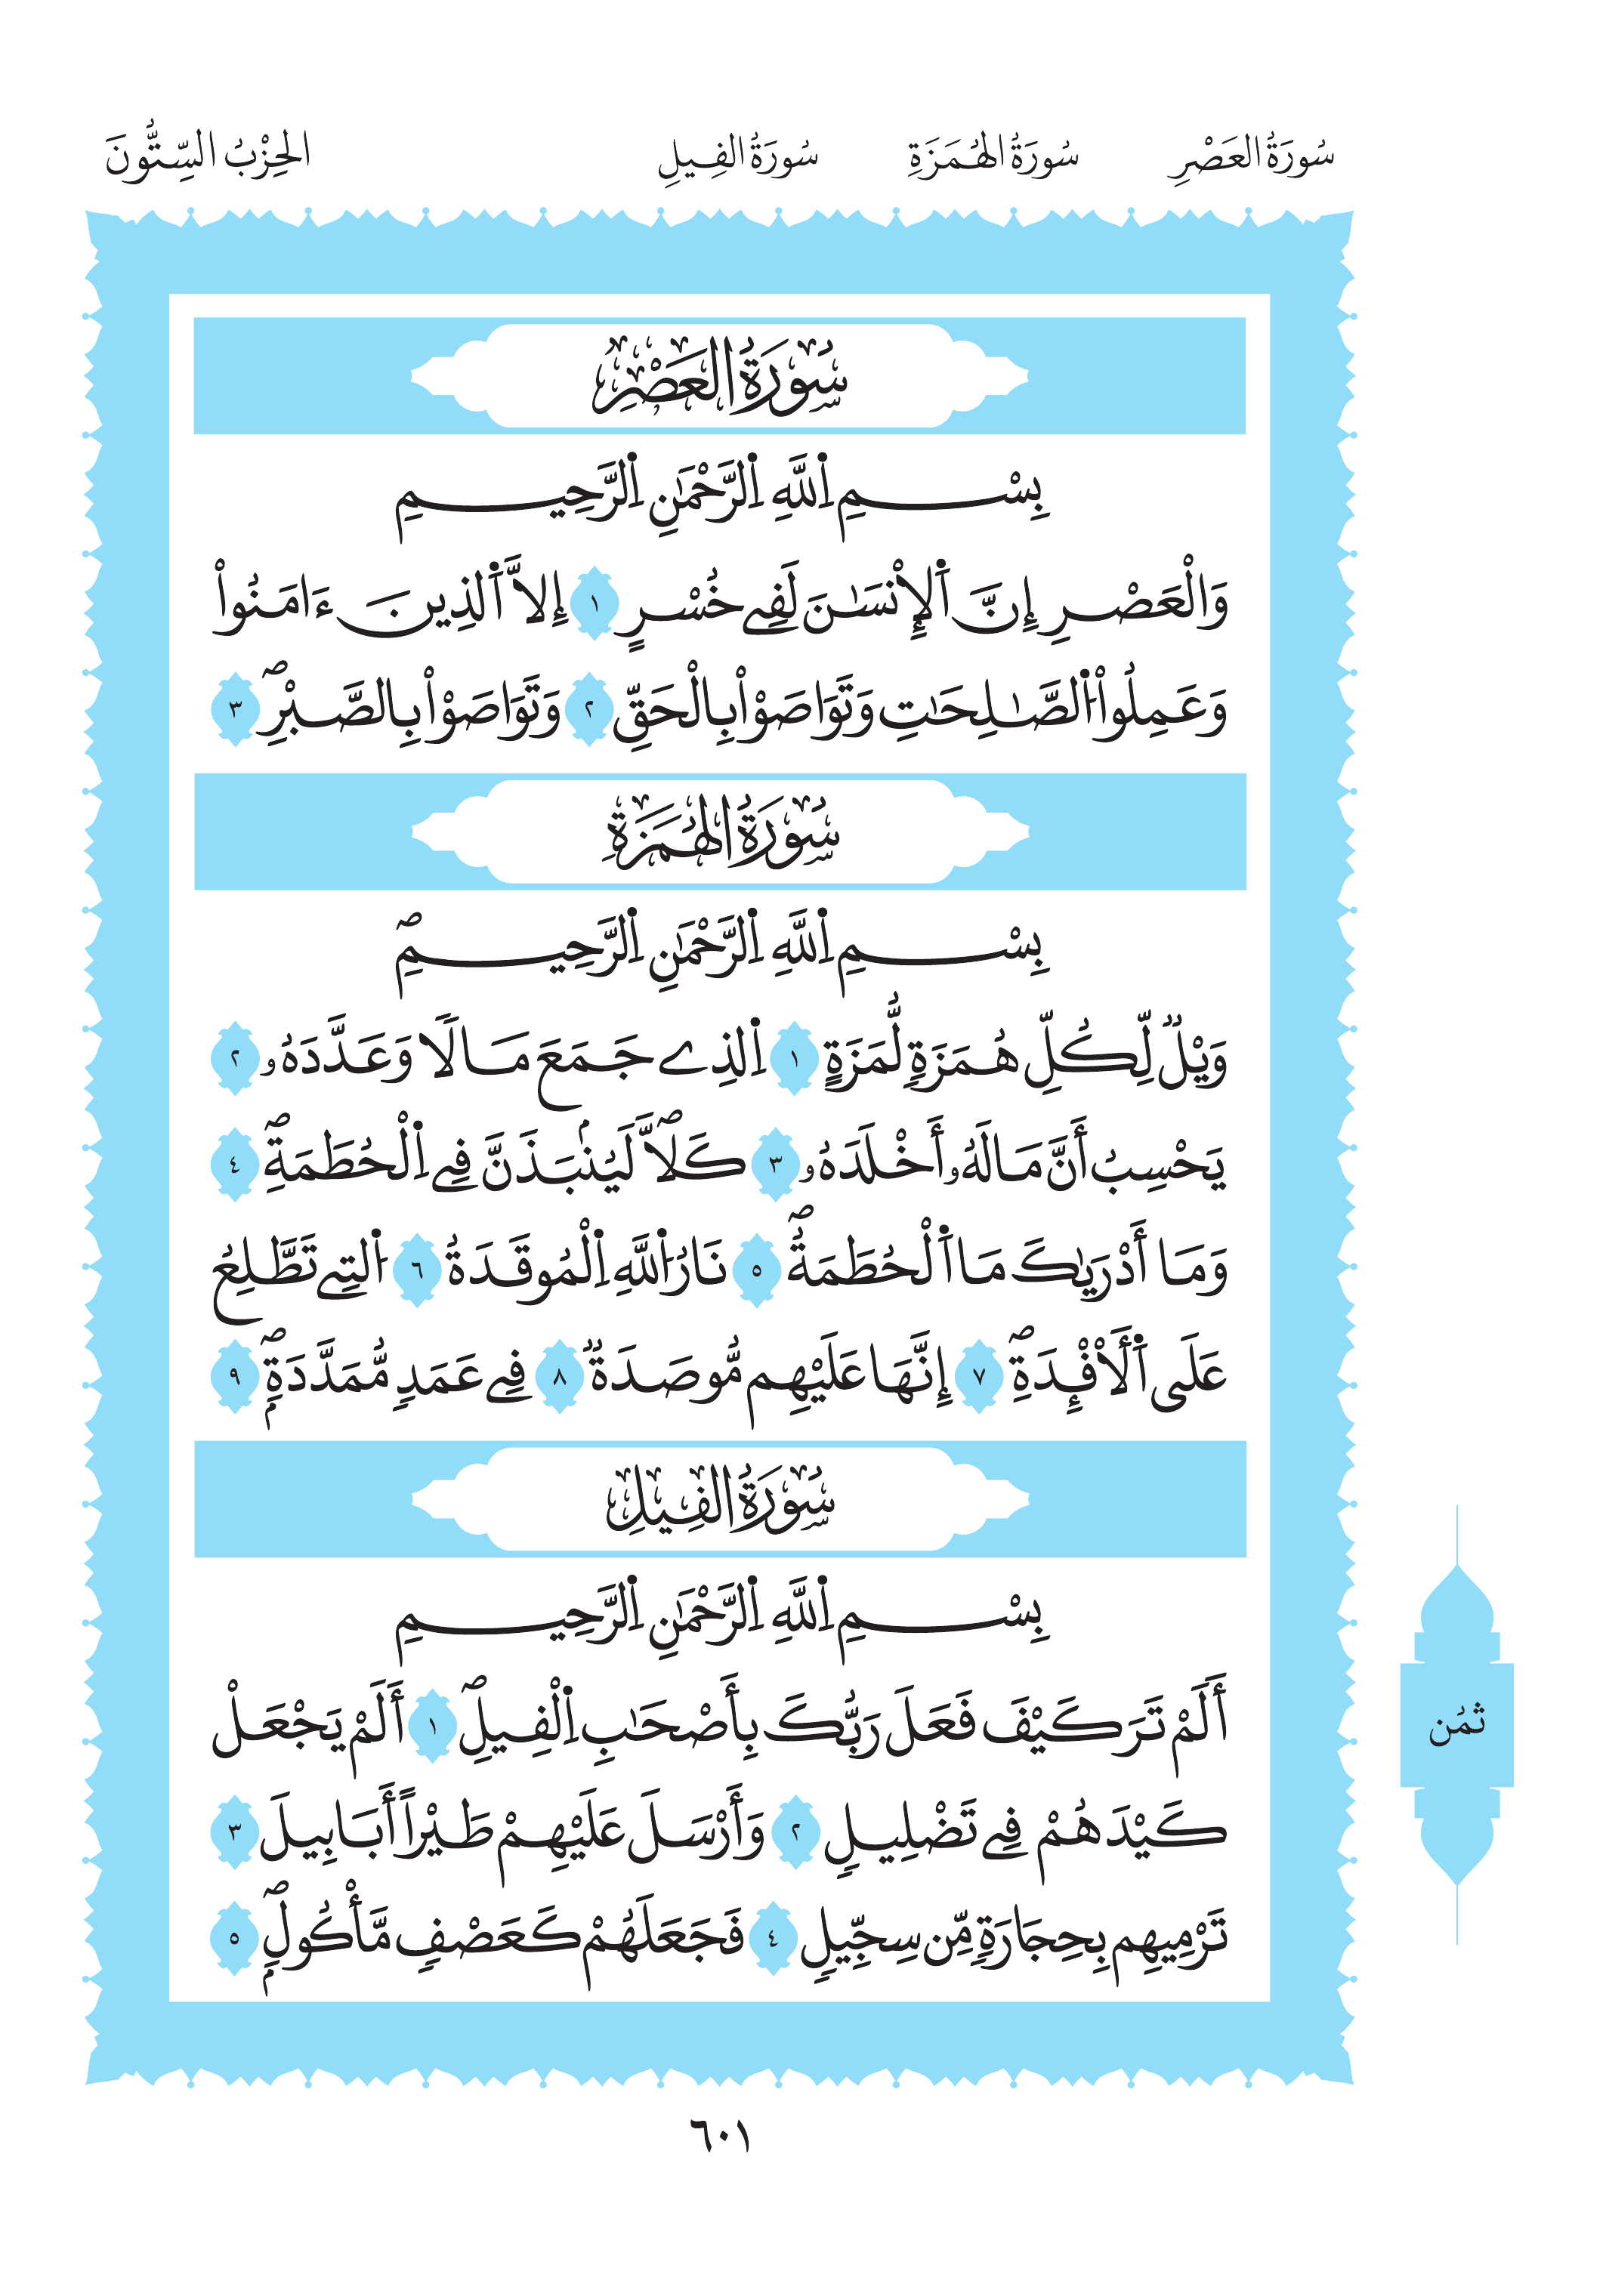 سُورَةُ العَصْرِ سُورَةُ الهُمَزَةِ سُورَةُ الفِيلِ الحِزْبُ السِّتُّونَ
سُورَةُ العَصْرِ
بِسْمِ اِ۬للَّهِ اِ۬لرَّحْمَٰنِ اِ۬لرَّحِيمِ
وَالْعَصْرِ إِنَّ اَ۬لْإِنْسَٰنَ لَفِے خُسْرٍ ١ إِلَّا اَ۬لذِينَ ءَامَنُواْ
وَعَمِلُواْ اُ۬لصَّٰلِحَٰتِ وَتَوَاصَوْاْ بِالْحَقِّ ٢ وَتَوَاصَوْاْ بِالصَّبْرِۖ ٣
سُورَةُ الهُمَزَةِ
بِسْمِ اِ۬للَّهِ اِ۬لرَّحْمَٰنِ اِ۬لرَّحِيمِۖ
وَيْلٌ لِّكُلِّ هُمَزَةٍ لُّمَزَةٍ ١ اِ۬لذِے جَمَعَ مَالًا وَعَدَّدَهُۥ ٢
يَحْسِبُ أَنَّ مَالَهُۥ أَخْلَدَهُۥ ٣ كَلَّاۖ لَيُنۢبَذَنَّ فِے اِ۬لْحُطَمَةِۖ ٤
وَمَا أَدْرَيٰكَ مَا اَ۬لْحُطَمَةُۖ ٥ نَارُ اُ۬للَّهِ اِ۬لْمُوقَدَةُ ٦ اُ۬لتِے تَطَّلِعُ
عَلَى اَ۬لْأَفْـِٕدَةِۖ ٧ إِنَّهَا عَلَيْهِم مُّوصَدَةٌ ٨ فِے عَمَدٍ مُّمَدَّدَةٍۖ ٩
سُورَةُ الفِيلِ
بِسْمِ اِ۬للَّهِ اِ۬لرَّحْمَٰنِ اِ۬لرَّحِيمِ
أَلَمْ تَرَ كَيْفَ فَعَلَ رَبُّكَ بِأَصْحَٰبِ اِ۬لْفِيلِۖ ١ أَلَمْ يَجْعَلْ
كَيْدَهُمْ فِے تَضْلِيلٍ ٢ وَأَرْسَلَ عَلَيْهِمْ طَيْراً أَبَابِيلَ ٣
تَرْمِيهِم بِحِجَارَةٍ مِّن سِجِّيلٍ ٤ فَجَعَلَهُمْ كَعَصْفٍ مَّأْكُولٍۖ ٥
ثمُن
٦٠١